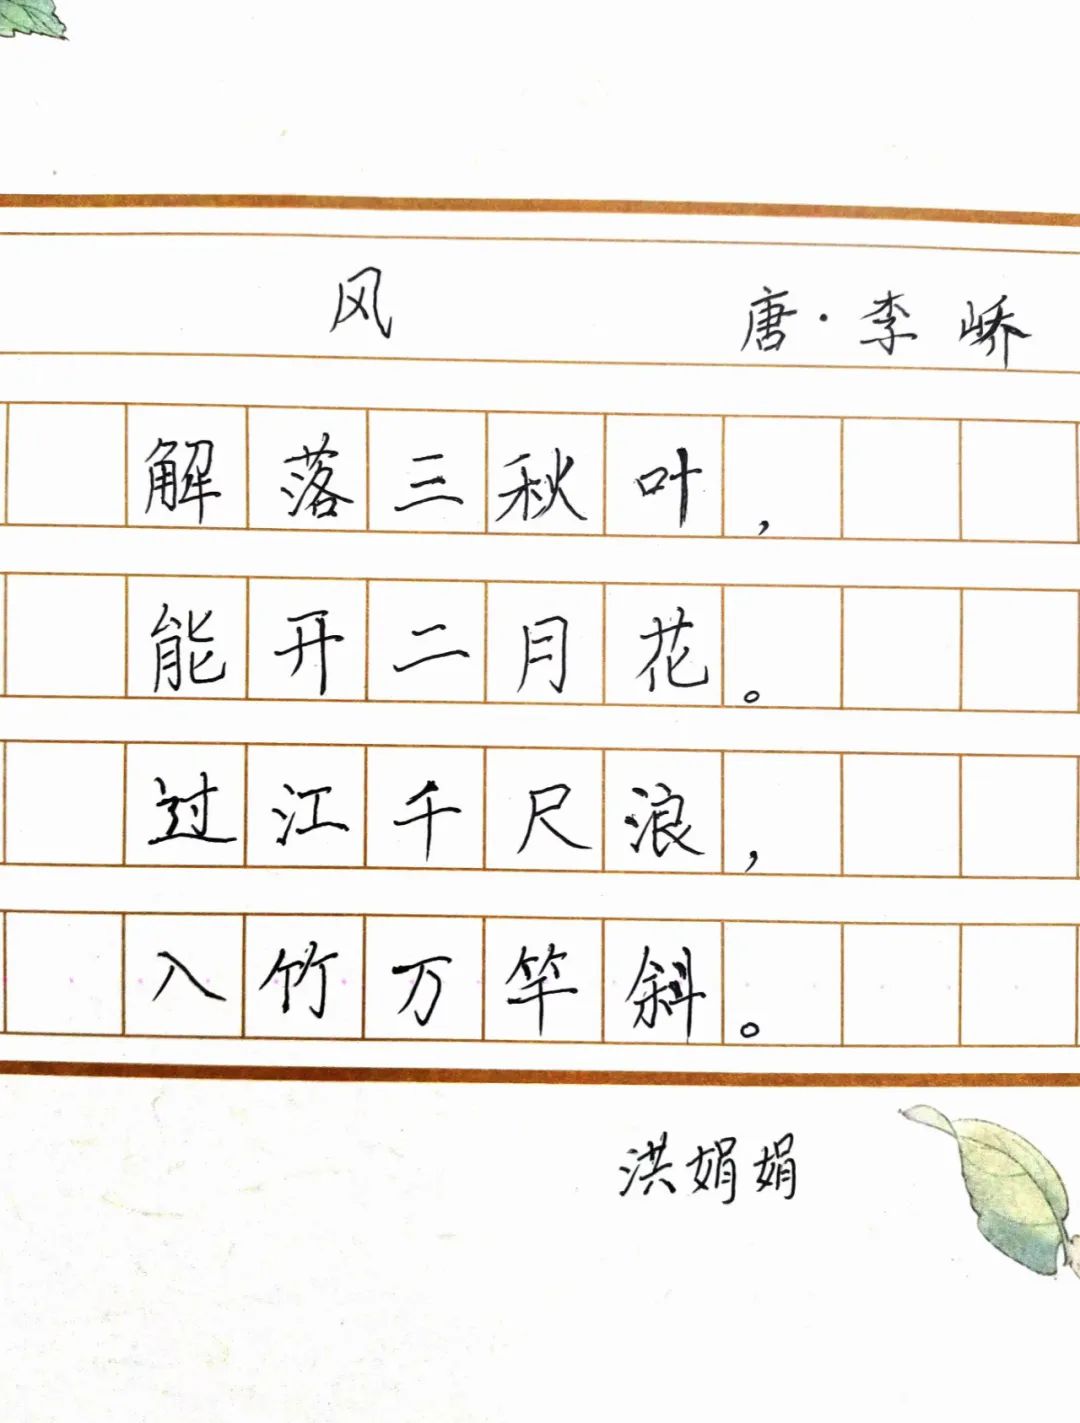 风 唐·李峤
解落三秋叶，
能开二月花。
过江千尺浪，
入竹万竿斜。
洪娟娟